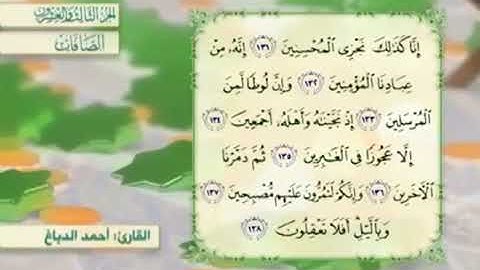 الجزء الثالث والعشرون
الصافات
إِنَّا كَذَٰلِكَ نَجْزِي الْمُحْسِنِينَ ١٣١ إِنَّهُ مِنْ
عِبَادِنَا الْمُؤْمِنِينَ ١٣٢ وَإِنَّ لُوطًا لَمِنَ
الْمُرْسَلِينَ ١٣٣ إِذْ نَجَّيْنَاهُ وَأَهْلَهُ أَجْمَعِينَ ١٣٤
إِلَّا عَجُوزًا فِي الْغَابِرِينَ ١٣٥ ثُمَّ دَمَّرْنَا
الْآخَرِينَ ١٣٦ وَإِنَّكُمْ لَتَمُرُّونَ عَلَيْهِم مُصْبِحِينَ ١٣٧
وَبِاللَّيْلِ أَفَلَا تَعْقِلُونَ ١٣٨
القارئ: أحمد الدباغ